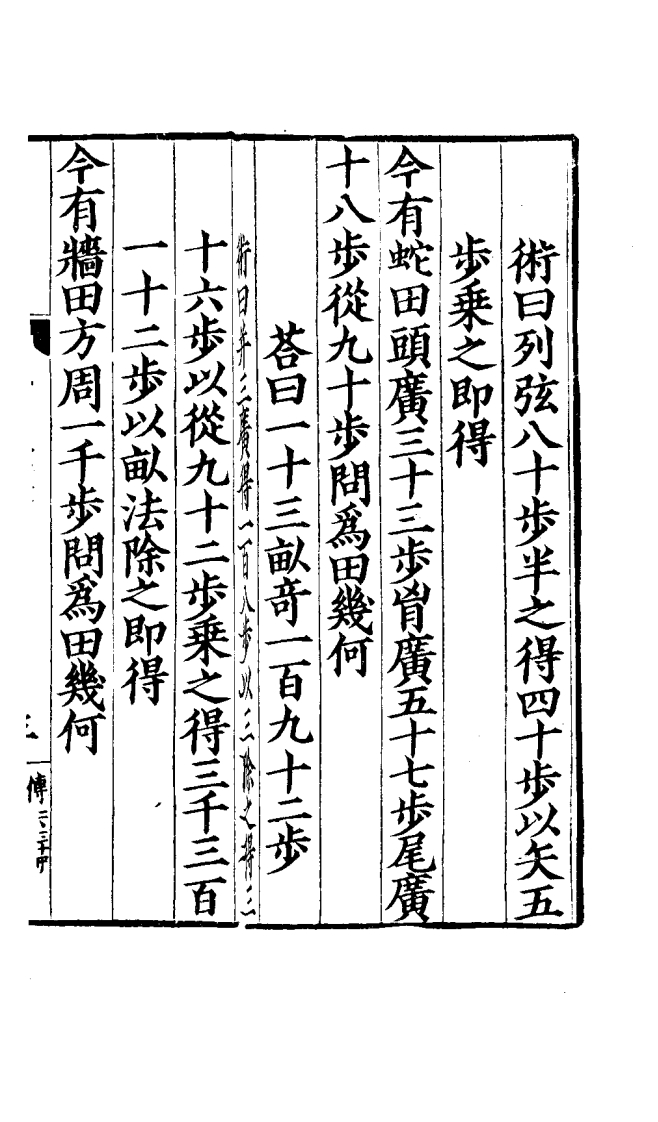 術曰列弦八十歩半之得四十歩以矢五
歩乗之即得
今有蛇田頭廣三十三歩胷廣五十七歩尾廣
十八歩從九十歩問爲田幾何
荅曰一十三畝竒一百九十二歩
術曰并三廣得一百八歩以三除之得三
十六歩以從九十二歩乗之得三千三百
一十二歩以畝法除之即得
今有牆田方周一千歩問爲田幾何
三
傅